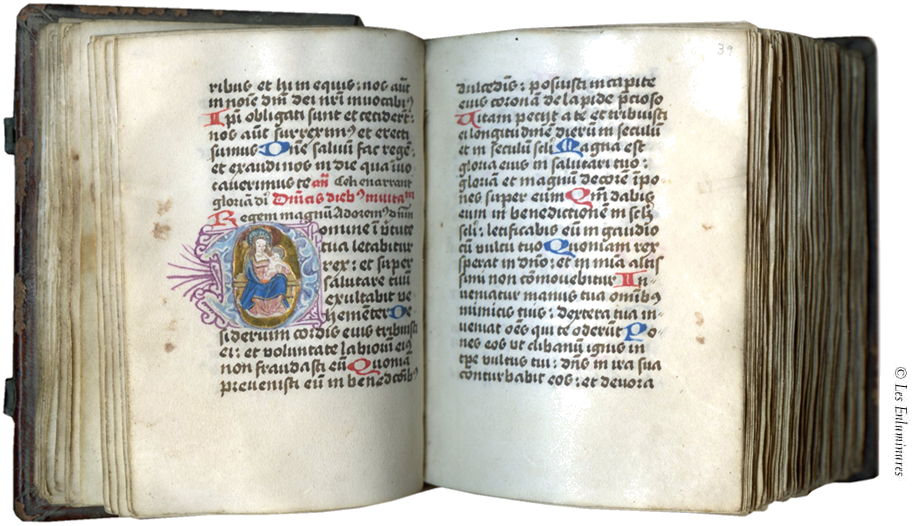 ribus et hi in equis : nos aūt
in noīe dn̄i dei nr̄i invocabimꝰ
Ip̄i obligati sunt et cecidert̄
nos aūt surreximꝰ et erecti
sumus Dn̄e salvū fac regē :
et exaudi nos in die qua īvo
caverimus te an̄ Celi enarrant
gloriā di Dn̄icis diebꝰ
Regem magnū Adoremꝰ dn̄m
Domine ī v̓tute
tua letabitur
rex : et super
salutare tuū
exultabit ve
hementer De
siderium cordis eius tribuisti
ei : et voluntate labioꝝ eiꝰ
non fraudasti eū Quoniā
prevenisti eū in benedc̄oībꝰ
39
dulcedīs : posuisti in capite
eius coronā de lapide p̄cioso
Vitam peciit a te et tribuisti
ei longitudinē dierū in seculū
et in seculū scli Magna est
gloria eius in salutari tuo :
gloriā et magnū decorē īpo
nes super eum Qm̄ dabis
eum in benedictionem in sclm̄
scli : letificabis eū in gaudio
cū vultu tuo Quoniam rex
sperat in dn̄o : et in mīa altis
simi non cōmovebitur In-
veniatur manus tua omībꝰ
inimicis tuis : dextera tua in-
veniat oēs qui te oderūt Po-
nes eos ut clibanū ignis in
tp̄e vultus tui : dn̄s in ira sua
conturbabit eos : et devora
© Les Enluminures